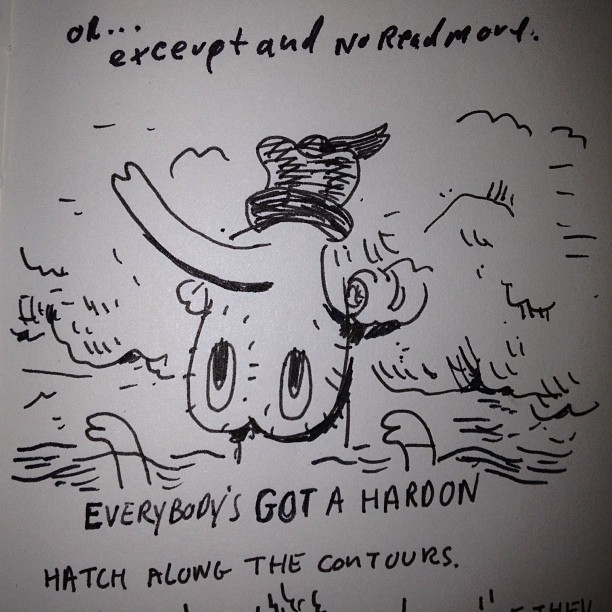 or...
excerpt and No Read more.
EVERYBODY'S GOT A HARDON
HATCH ALONG THE CONTOURS.